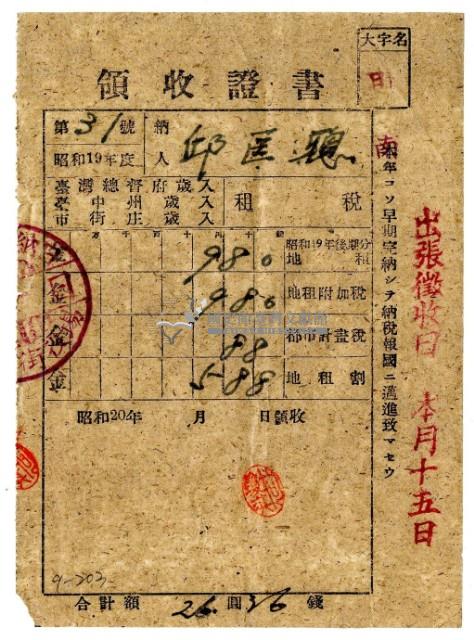 大字名
田
領收證書
第31號
納人
邱
昭和19年度
臺灣總督府歲入
臺中州歲入
市街庄歲入
租稅
十萬千百十
昭和19年後期分
地租
980
地租附加稅
980
都市計畫稅
88
地租割
588
金
金
金
金
昭和20年 月 日領收
合計額 26圓36錢
9-203
年コソ早期完納シテ納稅報國ニ邁進致マセウ
出張徵收日 本月十五日